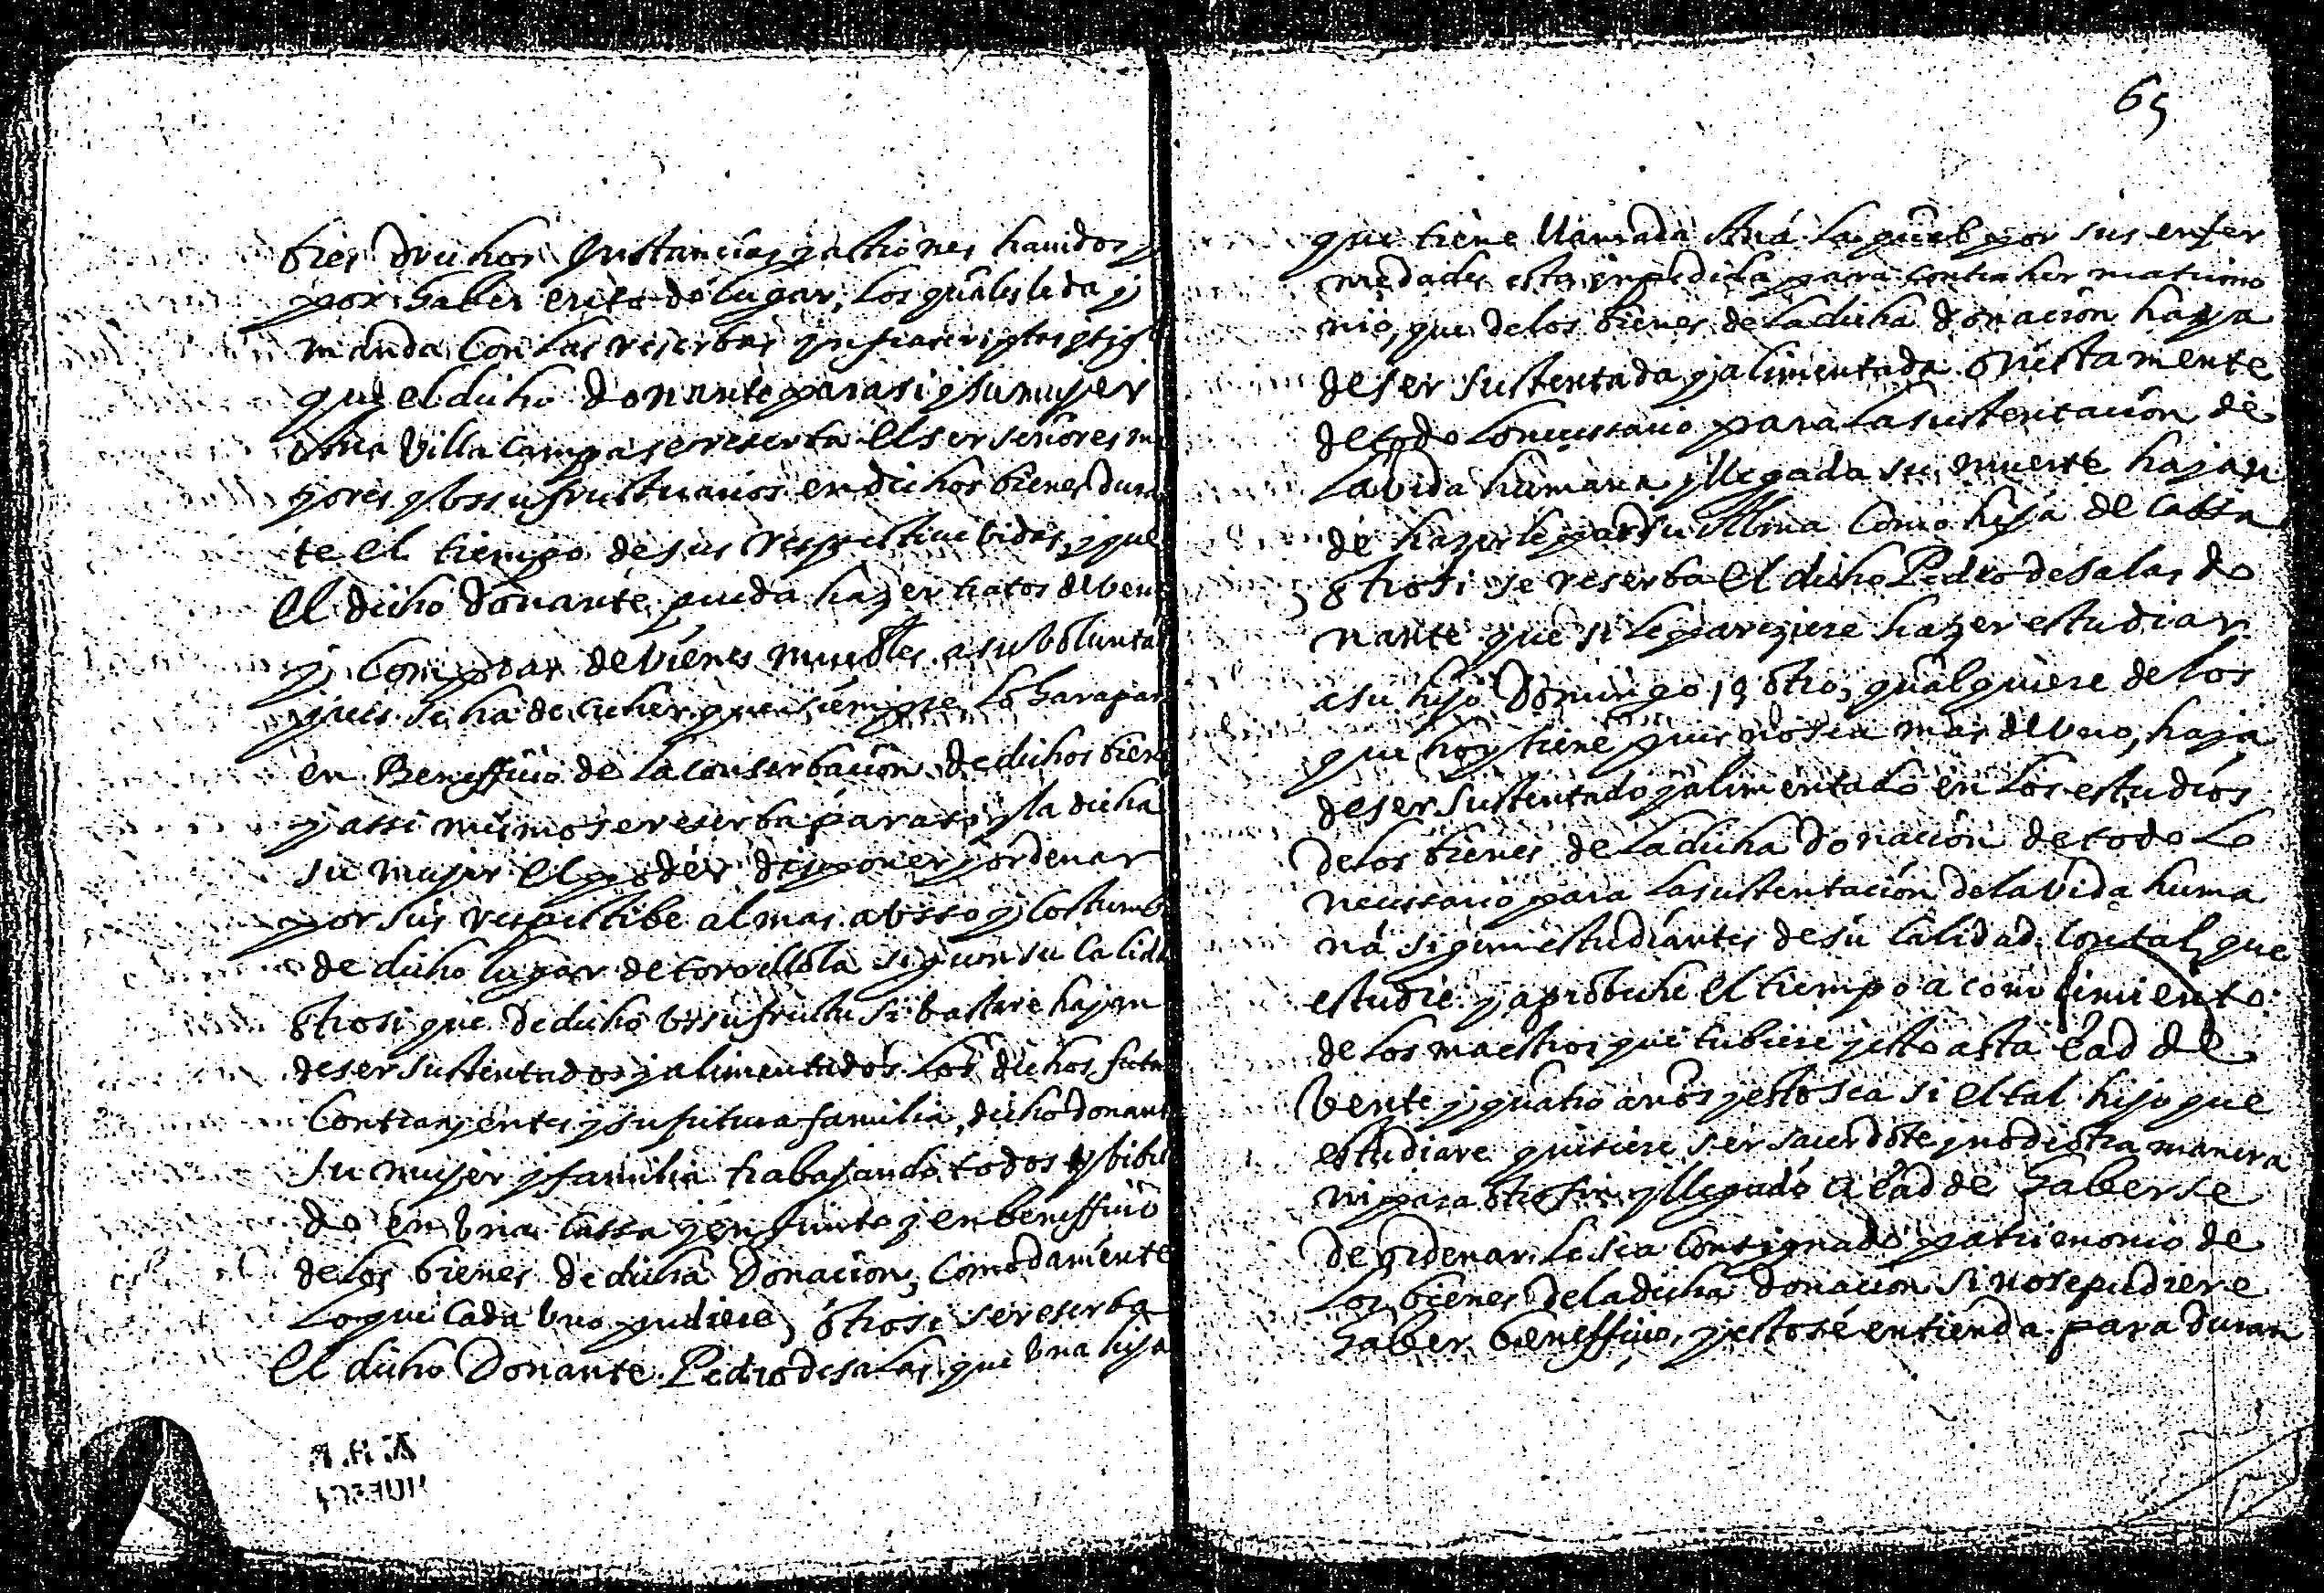 bres drechos Instancias y actiones havidos y
por haber en todo lugar, los quales le da y
manda con las reserbas infrascriptas
que el dicho donante para si y su mujer
Villacampa se reserba el ser señores ma
yores y ussufructuarios en dichos bienes duran
te el tiempo de sus respective vidas, y que
El dicho donante pueda hazer tratos de ven
y comprar de bienes muebles a su boluntad
pues se ha de creher que siempre lo hara para
en Beneffiçio de la conserbaçion de dichos biene
y assi mismo se reserba para si y la dicha
su mujer el poder disponer y ordenar
por sus respectibe almas a usso y costumb
de dicho lugar de torrillola siguen su calida
otrosi que de dicho ussufructu si bastare hayan
de ser sustentados y alimentados los dichos futu
Contrayentes y su futura familia, dicho donante
su mujer y familia trabajando todos y bibi
do en una cassa y en junto y en beneffiçio
de los bienes de dicha Donaçion, comodamente
lo que cada uno pudiere, otrosi se reserba
El dicho Donante Pedro de salas que una hija
65
que tiene llamada Ana la qual por sus enfer
medades esta inpedida para contraher matrimo
nio, que de los bienes de la dicha donaçion haya
de ser sustentada y alimentada onestamente
de todo lo necessario para la sustentaçion de
la vida humana y llegada su muerte hajan
de hazer le por su Alma como hija de cassa
otrosi se reserba el dicho Pedro de salas do
nante que si le pareziere hazer estudiar
a su hijo Domingo, o otro, qualquiere de los
que hoy tiene pues no sea mas de uno, haja
de ser sustentado y alimentado en los estudios
de los bienes de la dicha donaçion de todo lo
necessario para la sustentaçion de la vida huma
na siguen estudiantes de su calidad con tal que
estudie y aprobeche el tiempo a conosimiento
de los maestros que tubiere y esto asta edad de
vente y quatro años y esto sea si el tal hijo que
estudiare quisiere ser sacerdote y no de otra manera
ni para otro fin y llegado a edad de haberse
de ordenar le sea consignado patrimonio de
los bienes de la dicha donaçion si no se pudiere
haber beneffiçio, y esto se entienda para duran